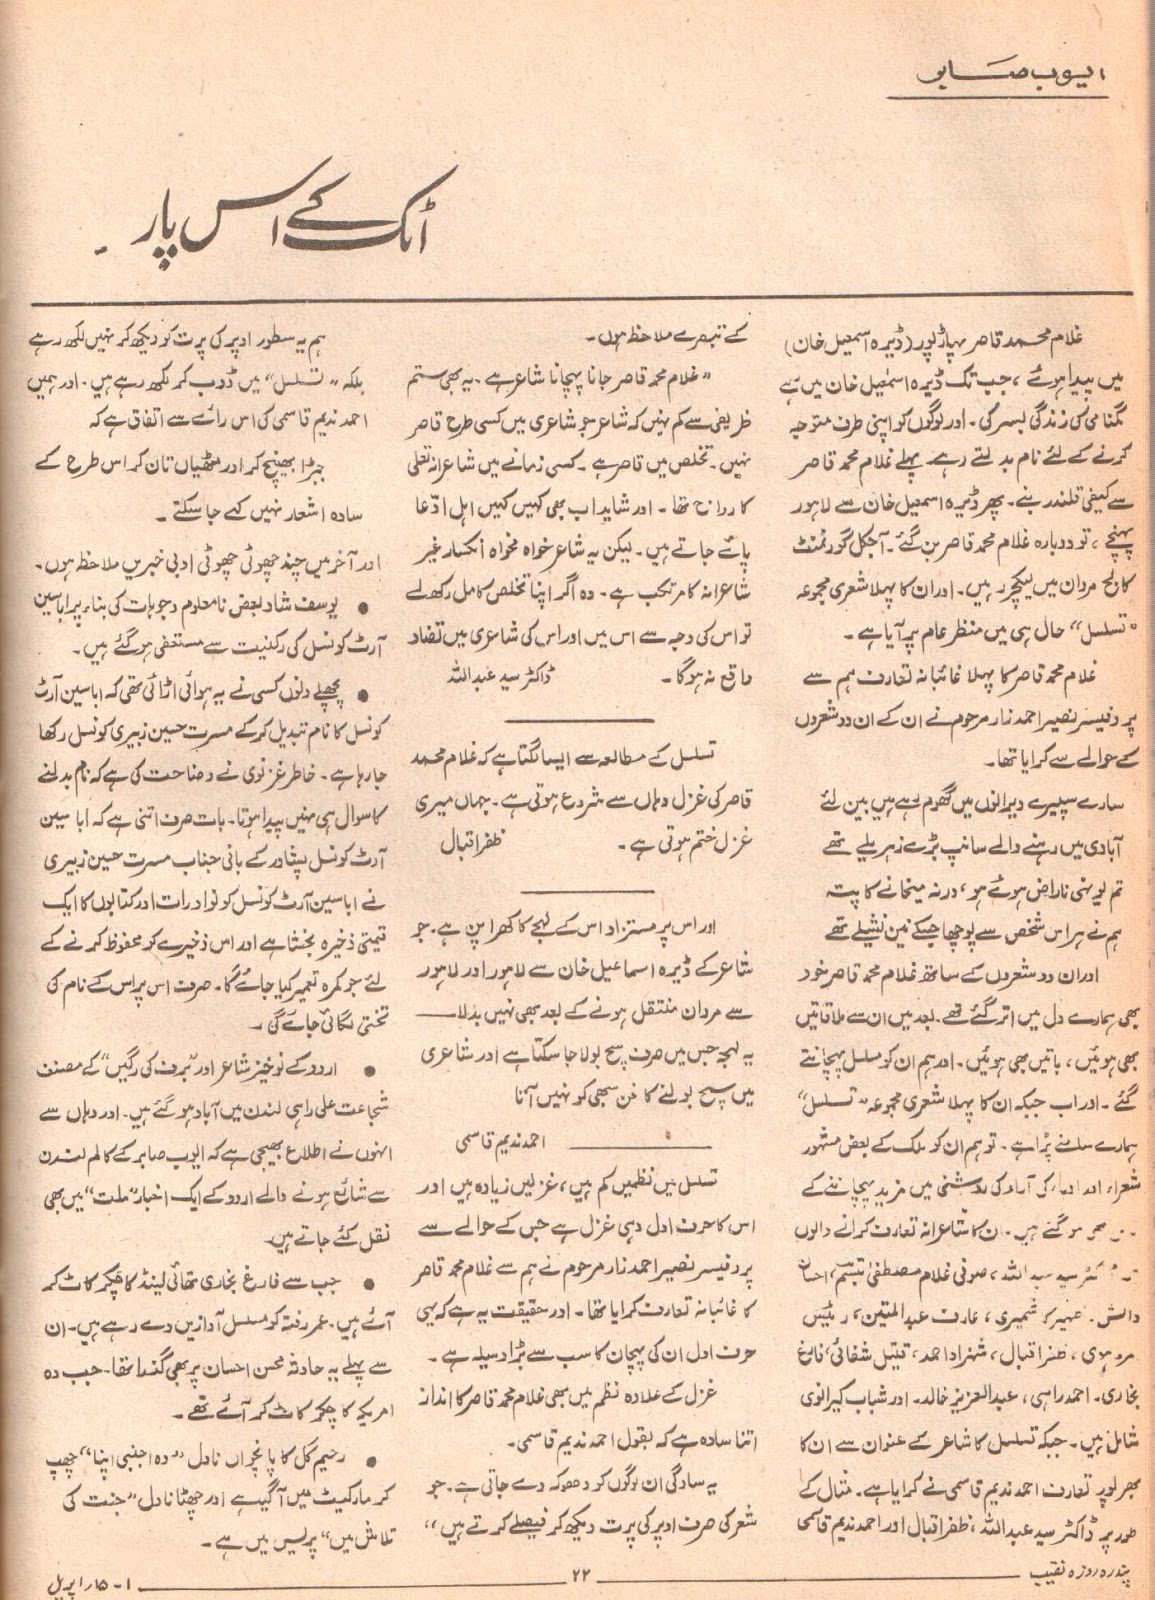 ایوب صابر
اٹک کے اس پار۔
غلام محمد قاصر پہاڑپور (ڈیرہ اسمعیل خان)
میں پیدا ہوئے، جب تک ڈیرہ اسمٰعیل خان میں رہے
گمنامی کی زندگی بسر کی۔ اور لوگوں کو اپنی طرف متوجہ
کرنے کے لئے نام بدلتے رہے۔ پہلے غلام محمد قاصر
سے کیفی قلندر بنے۔ پھر ڈیرہ اسمعیل خان سے لاہور
پہنچے، تو دوبارہ غلام محمد قاصر بن گئے۔ آجکل گورنمنٹ
کالج مردان میں لیکچرر ہیں۔ اور ان کا پہلا شعری مجموعہ
"تسلسل" حال ہی میں منظر عام پر آیا ہے۔
غلام محمد قاصر کا پہلا غائبانہ تعارف ہم سے
پروفیسر نصیر احمد زار مرحوم نے ان کے ان دو شعروں
کے حوالے سے کرایا تھا۔
سارے سپیرے ویرانوں میں گھوم رہے ہیں بین لئے
آبادی میں رہنے والے سانپ بڑے زہریلے تھے
تم یونہی ناراض ہوئے ہو، ورنہ میخانے کا پتہ
ہم نے ہر اس شخص سے پوچھا جسکے نین نشیلے تھے
اور ان دو شعروں کے ساتھ غلام محمد قاصر خود
بھی ہمارے دل میں اتر گئے تھے۔ بعد میں ان سے ملاقاتیں
بھی ہوئیں، باتیں بھی ہوئیں۔ اور ہم ان کو مسلسل پہچانتے
گئے۔ اور اب جبکہ ان کا پہلا شعری مجموعہ "تسلسل"
ہمارے سامنے پڑا ہے۔ تو ہم ان کو ملک کے بعض مشہور
شعراء اور ادباء کی آراء کی روشنی میں مزید پہچاننے کے
ہو گئے ہیں۔ ان کا شاعرانہ تعارف کرانے والوں
سید عبداللہ، صوفی غلام مصطفیٰ تبسم، احسان
دانش۔ ظہیر کاشمیری، عارف عبدالمتین، رئیس
امروہوی، ظفر اقبال، شہزاد احمد، قتیل شفائی، فارغ
بخاری۔ احمد راہی، عبدالعزیز خالد۔ اور شباب کیرانوی
شامل ہیں۔ جبکہ تسلسل کا شاعر کے عنوان سے ان کا
بھرپور تعارف احمد ندیم قاسمی نے کرایا ہے۔ مثال کے
طور پر ڈاکٹر سید عبداللہ، ظفر اقبال اور احمد ندیم قاسمی
کے تبصرے ملاحظہ ہوں۔
"غلام محمد قاصر جانا پہچانا شاعر ہے۔ یہ بھی ستم
ظریفی سے کم نہیں کہ شاعر جو شاعری میں کسی طرح قاصر
نہیں۔ تخلص میں قاصر ہے۔ کسی زمانے میں شاعرانہ تعلی
کا رواج تھا۔ اور شاید اب بھی کہیں کہیں اہل ادّعا
پائے جاتے ہیں۔ لیکن یہ شاعر خواہ مخواہ انکسار غیر
شاعرانہ کا مرتکب ہے۔ وہ اگر اپنا تخلص کامل رکھ لے
تو اس کی وجہ سے اس میں اور اس کی شاعری میں تضاد
واقع نہ ہوگا۔ ڈاکٹر سید عبداللہ
تسلسل کے مطالعہ سے ایسا لگتا ہے کہ غلام محمد
قاصر کی غزل وہاں سے شروع ہوتی ہے۔ جہاں میری
غزل ختم ہوتی ہے۔ ظفر اقبال
اور اس پر مستزاد اس کے لہجے کا کھرا پن ہے۔ جو
شاعر کے ڈیرہ اسماعیل خان سے لاہور اور لاہور
سے مردان منتقل ہونے کے بعد بھی نہیں بدلا——
یہ لہجہ جس میں صرف سچ بولا جا سکتا ہے اور شاعری
میں سچ بولنے کا فن سبھی کو نہیں آتا
احمد ندیم قاسمی
تسلسل میں نظمیں کم ہیں، غزلیں زیادہ ہیں اور
اس کا حرف اول وہی غزل ہے جس کے حوالے سے
پروفیسر نصیر احمد زار مرحوم نے ہم سے غلام محمد قاصر
کا غائبانہ تعارف کرایا تھا۔ اور حقیقت یہ ہے کہ یہی
حرف اول ان کی پہچان کا سب سے بڑا وسیلہ ہے۔
غزل کے علاوہ نظم میں بھی غلام محمد قاصر کا انداز
اتنا سادہ ہے کہ بقول احمد ندیم قاسمی۔
یہ سادگی ان لوگوں کو دھوکہ دے جاتی ہے۔ جو
شعر کی صرف اوپر کی پرت دیکھ کر فیصلے کرتے ہیں"
ہم یہ سطور اوپر کی پرت کو دیکھ کر نہیں لکھ رہے
بلکہ "تسلسل" میں ڈوب کر لکھ رہے ہیں۔ اور ہمیں
احمد ندیم قاسمی کی اس رائے سے اتفاق ہے کہ
جبڑا بھینچ کر اور مٹھیاں تان کر اس طرح کے
سادہ اشعار نہیں کہے جا سکتے۔
اور آخر میں چند چھوٹی چھوٹی ادبی خبریں ملاحظہ ہوں۔
● یوسف شاد بعض نامعلوم وجوہات کی بناء پر اباسین
آرٹ کونسل کی رکنیت سے مستعفی ہو گئے ہیں۔
● پچھلے دنوں کسی نے یہ ہوائی اڑائی تھی کہ اباسین آرٹ
کونسل کا نام تبدیل کر کے مسرت حسین زبیری کونسل رکھا
جا رہا ہے۔ خاطر غزنوی نے وضاحت کی ہے کہ نام بدلنے
کا سوال ہی نہیں پیدا ہوتا۔ بات صرف اتنی ہے کہ اباسین
آرٹ کونسل پشاور کے بانی جناب مسرت حسین زبیری
نے اباسین آرٹ کونسل کو نوادرات اور کتابوں کا ایک
قیمتی ذخیرہ بخشا ہے اور اس ذخیرے کو محفوظ کرنے کے
لئے جو کمرہ تعمیر کیا جائے گا۔ صرف اس پر اس کے نام کی
تختی لگائی جائے گی۔
● اردو کے نوخیز شاعر اور "برف کی رگیں" کے مصنف
شجاعت علی راہی لندن میں آباد ہو گئے ہیں۔ اور وہاں سے
انہوں نے اطلاع بھیجی ہے کہ ایوب صابر کے کالم لندن
سے شائع ہونے والے اردو کے ایک اخبار "ملت" میں بھی
نقل کئے جاتے ہیں۔
● جب سے فارغ بخاری تھائی لینڈ کا چکر کاٹ کر
آئے ہیں۔ عمر رفتہ کو مسلسل آوازیں دے رہے ہیں۔ ان
سے پہلے یہ حادثہ محسن احسان پر بھی گذرا تھا۔ جب وہ
امریکہ کا چکر کاٹ کر آئے تھے۔
● رحیم گل کا پانچواں ناول "وہ اجنبی اپنا" چھپ
کر مارکیٹ میں آ گیا ہے اور چھٹا ناول "جنت کی
تلاش میں" پریس میں ہے۔
پندرہ روزہ نقیب ۲۲ ۱-۱۵ اپریل